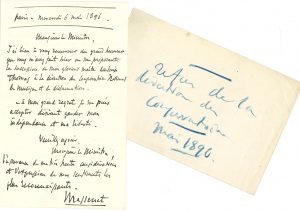 Paris - mercredi 6 mai 1896.
Monsieur le Ministre
J'ai bien à vous remercier du grand honneur
que vous m'avez fait hier en me proposant
la succession de mon glorieux maître Ambroise
Thomas à la direction du Conservatoire National
de musique et de déclamation.
à mon grand regret je ne puis
accepter désirant garder mon
indépendance et ma liberté.
Veuillez agréer,
Monsieur le Ministre,
l'expression de ma très haute considération
et de mes sentiments les
plus reconnaissants.
Massenet
Refus de la
direction du
Conservatoire
mai 1896.